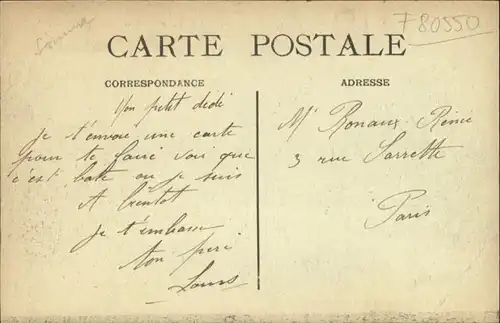 Somme
F80550
CARTE POSTALE
CORRESPONDANCE
ADRESSE
Mon petit dédé
Je t'envoie une carte
pour te faire voir que
c'est bate ou je suis
A bientot
Je t'embrasse
ton père
Louis
Mr Ronaux Rénée
3 rue Sarrette
Paris